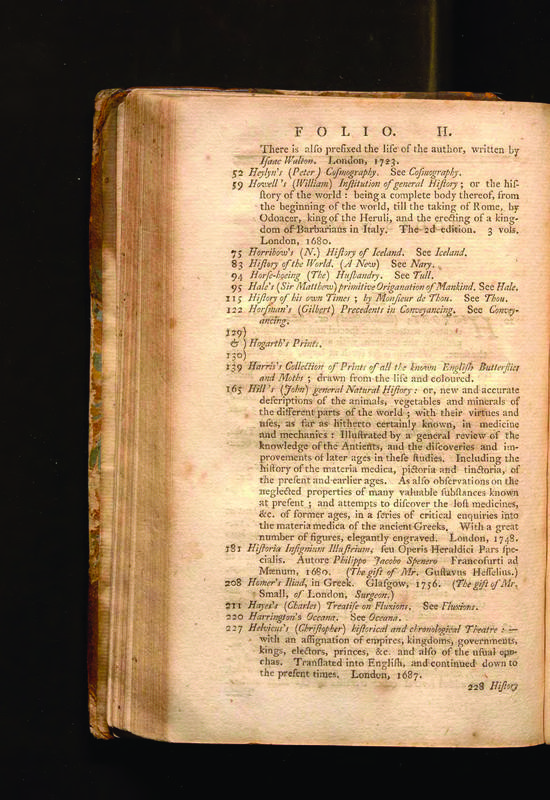 FOLIO. H.
There is alſo prefixed the life of the author, written by
Iſaac Walton. London, 1723.
52 Heylyn's (Peter) Coſmography. See Coſmography.
59 Howell's (William) Inſtitution of general Hiſtory; or the hiſ-
ſtory of the world: being a complete body thereof, from
the beginning of the world, till the taking of Rome, by
Odoacer, king of the Heruli, and the erecting of a king-
dom of Barbarians in Italy. The 2d edition. 3 vols.
London, 1680.
75 Horribow's (N.) Hiſtory of Iceland. See Iceland.
83 Hiſtory of the World. (A New) See Nary.
94 Horſe-hoeing (The) Huſbandry. See Tull.
95 Hale's (Sir Matthew) primitive Origanation of Mankind. See Hale.
115 Hiſtory of his own Times; by Monſieur de Thou. See Thou.
122 Horſman's (Gilbert) Precedents in Conveyancing. See Convey-
ancing.
129)
& ) Hogarth's Prints.
130)
139 Harris's Collection of Prints of all the known Engliſh Butterflies
and Moths; drawn from the life and coloured.
165 Hill's (John) general Natural Hiſtory: or, new and accurate
deſcriptions of the animals, vegetables and minerals of
the different parts of the world; with their virtues and
uſes, as far as hitherto certainly known, in medicine
and mechanics: Illuſtrated by a general review of the
knowledge of the Antients, and the diſcoveries and im-
provements of later ages in theſe ſtudies. Including the
hiſtory of the materia medica, pictoria and tinctoria, of
the preſent and earlier ages. As alſo obſervations on the
neglected properties of many valuable ſubſtances known
at preſent; and attempts to diſcover the loſt medicines,
&c. of former ages, in a ſeries of critical enquiries into
the materia medica of the ancient Greeks. With a great
number of figures, elegantly engraved. London, 1748.
181 Hiſtoria Inſignium Illuſtrium, ſeu Operis Heraldici Pars ſpe-
cialis. Autore Philippo Jacobo Spenero Francofurti ad
Mœnum, 1680. (The gift of Mr. Guſtavus Heſſelius.)
208 Homer's Iliad, in Greek. Glaſgow, 1756. (The gift of Mr.
Small, of London, Surgeon.)
211 Hayes's (Charles) Treatiſe on Fluxions. See Fluxions.
220 Harrington's Oceana. See Oceana.
227 Helvicus's (Chriſtopher) hiſtorical and chronological Theatre:—
with an aſſignation of empires, kingdoms, governments,
kings, electors, princes, &c. and alſo of the uſual epo-
chas. Tranſlated into Engliſh, and continued down to
the preſent times. London, 1687.
228 Hiſtory